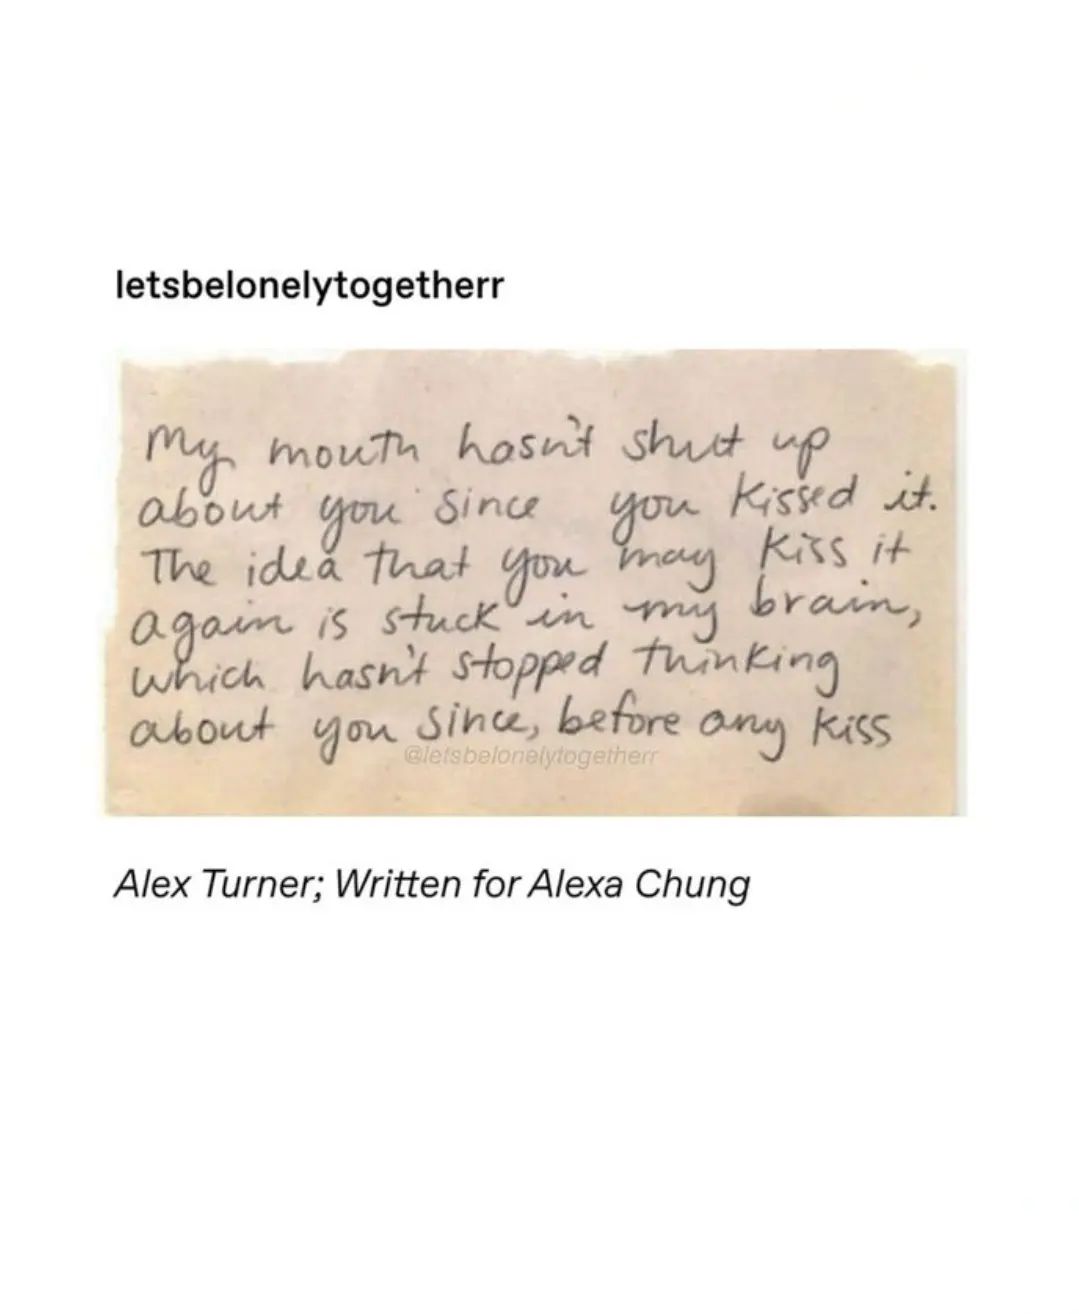 letsbelonelytogetherr
My mouth hasn't shut up
about you since you kissed it.
The idea that you may kiss it
again is stuck in my brain,
which hasn't stopped thinking
about you since, before any kiss
@letsbelonelytogetherr
Alex Turner; Written for Alexa Chung